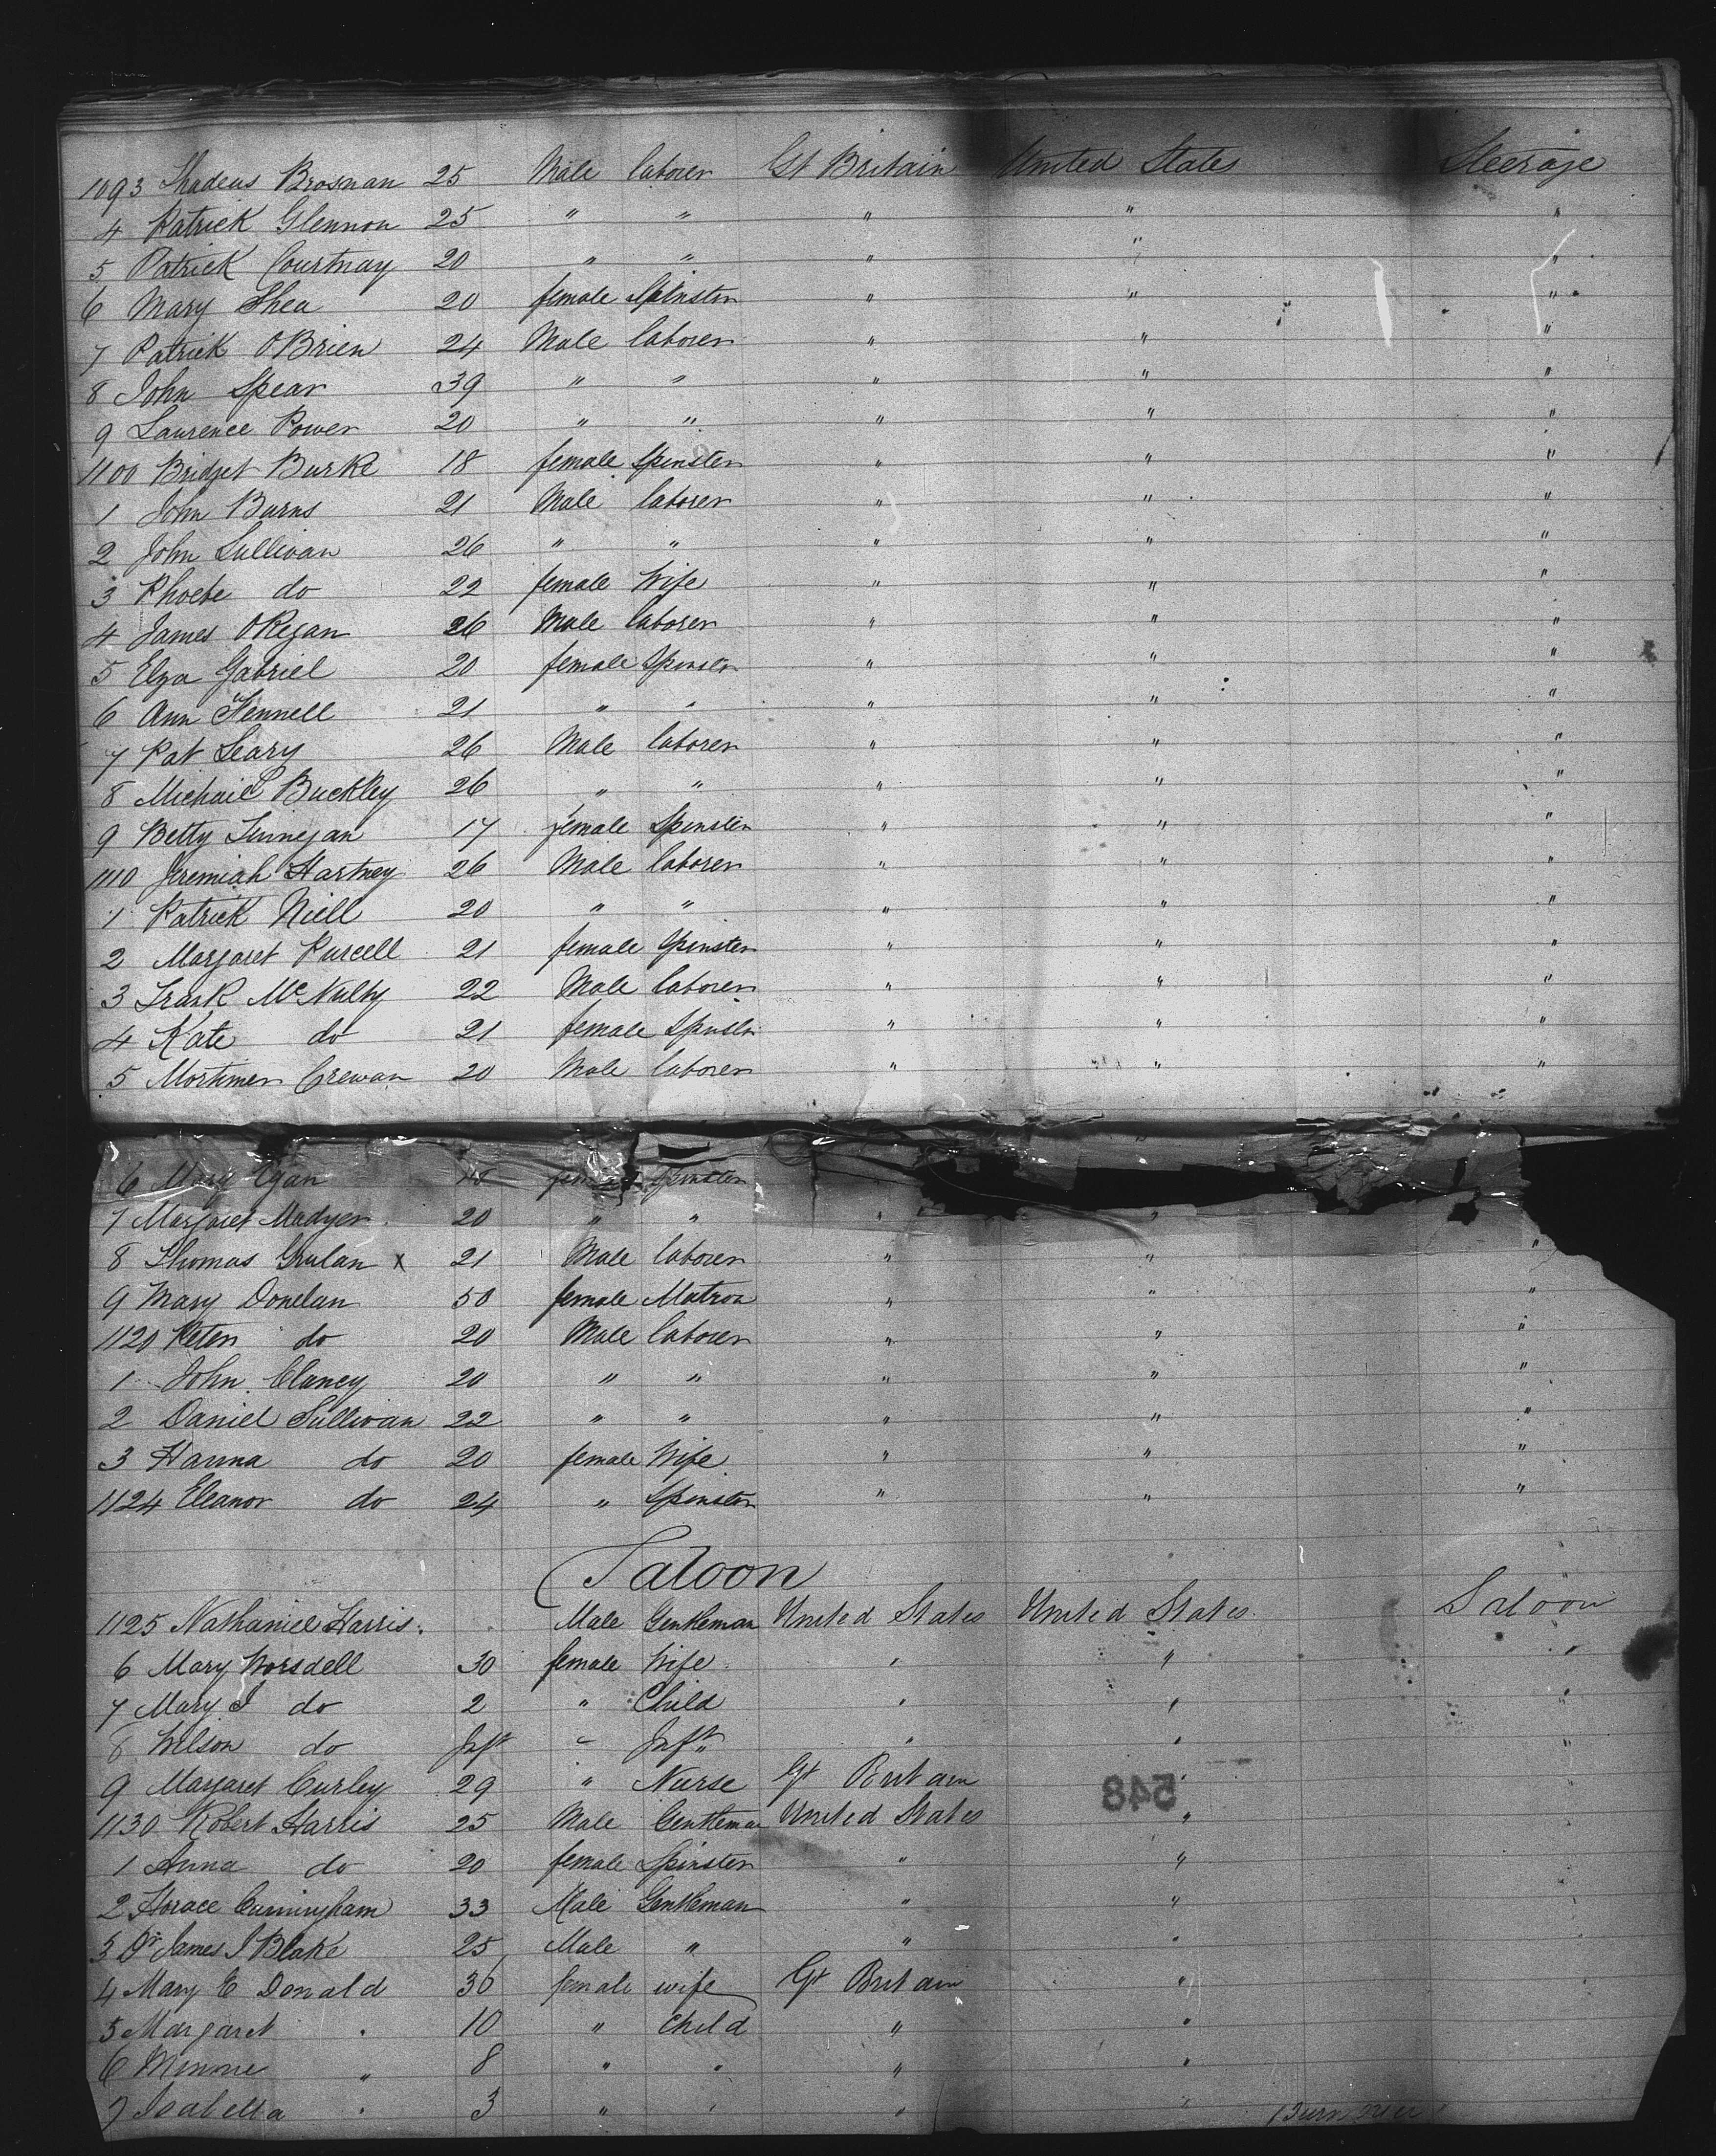 1093 Thadeus Brosnan 25 Male laborer Gt Britain United States Steerage
4 Patrick Glennon 25 " " " " "
5 Patrick Courtnay 20 " " " " "
6 Mary Shea 20 female Spinster " " "
7 Patrick OBrien 24 Male laborer " " "
8 John Spear 39 " " " " "
9 Laurence Power 20 " " " " "
1100 Bridget Burke 18 female Spinster " " "
1 John Burns 21 Male laborer " " "
2 John Sullivan 26 " " " " "
3 Phoebe do 22 female Wife " " "
4 James ORegan 26 Male laborer " " "
5 Elza Gabriel 20 female Spinster " " "
6 Ann Fennell 21 " " " " "
7 Pat Leary 26 Male laborer " " "
8 Michail Buckley 26 " " " " "
9 Betty Finnegan 17 female Spinster " " "
1110 Jeremiah Hartney 26 Male laborer " " "
1 Patrick Niell 20 " " " " "
2 Margaret Purcell 21 female Spinster " " "
3 Frank McNulty 22 Male laborer " " "
4 Kate do 21 female Spinster " " "
5 Mortimer Crewan 20 Male laborer " " "
6 Mary Egan 18 female Spinster " "
7 Margaret Madyer 20 " " " "
8 Thomas Grulan x 21 Male laborer " " "
9 Mary Donelan 50 female Matron " " "
1120 Peter do 20 Male laborer " " "
1 John Clancy 20 " " " " "
2 Daniel Sullivan 22 " " " " "
3 Hanna do 20 female Wife " " "
1124 Eleanor do 24 " Spinster " " "
Saloon
1125 Nathaniel Harris Male Gentleman United States United States Saloon
6 Mary Worsdell 30 female Wife " " "
7 Mary I do 2 " Child " " "
8 Wilson do Inft " Inft " " "
9 Margaret Curley 29 " Nurse Gt Britain " "
548
1130 Robert Harris 25 Male Gentleman United States "
1 Anna do 20 female Spinster " "
2 Horace Cunningham 33 Male Gentleman " "
3 Dr James I Blake 25 Male " " "
4 Mary E Donald 36 female wife Gt Britain "
5 Margaret " 10 " Child " "
6 Minnie " 8 " " " "
7 Isabella " 3 " " " "
Turn over